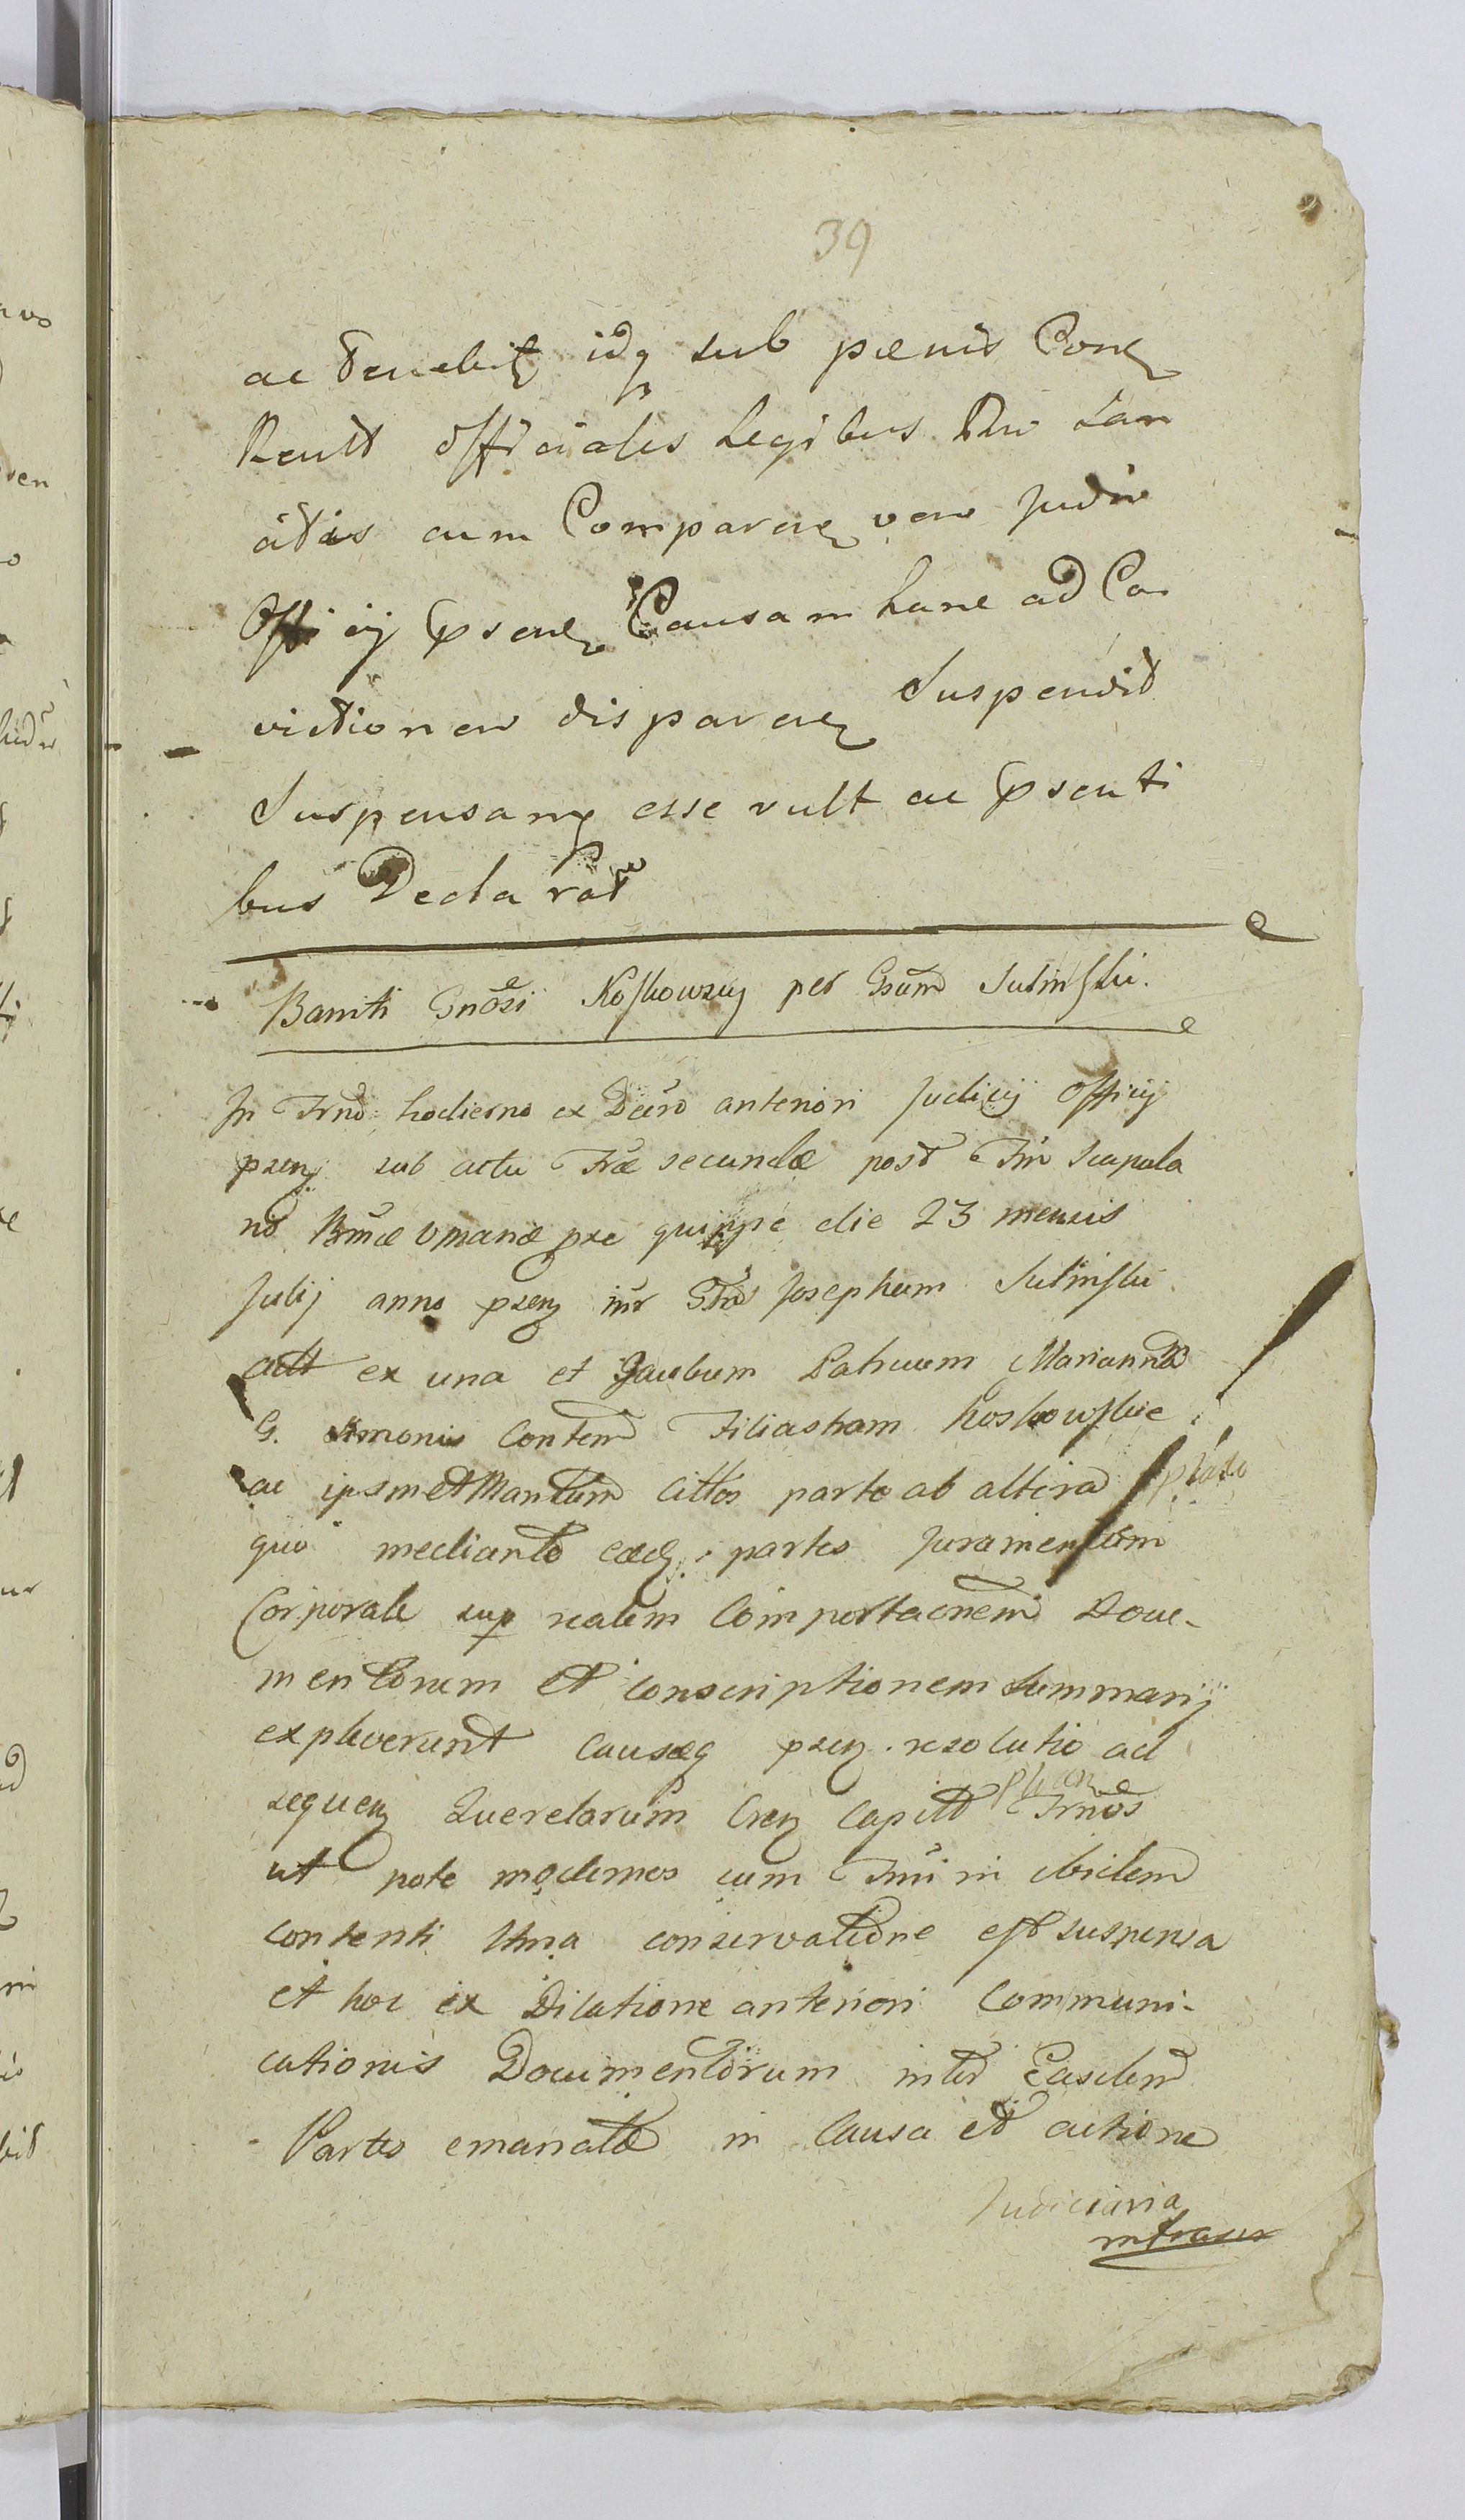 39
ac Tenebit idq sub pœnis Con
Reült officiales Legibus
atis cum Comparen vero Judin
Officij Causam hanc ad Con
victionem disparen Suspendit
Suspensamq esse vult ac psenti
bus Declarat
Baniti Gnosi Koskowscy per Gsum Sulinski.
In Trno hodierno ex Dcro anteriori Judicij Officij
pszen sub actu Fræ secundæ post Ftm Scapula
ris Bmæ Vmanæ quippe die 23 mensis
Julij anno pszen intr Josephum Sulinski
actt ex una et Jacobum Patruum Mariannã
G. Simonis Conten Filiastram Koskowskie
ac ipsmet Maritum citttos parte ab altera
quo mediante eædq. partes Juramentum
Corporale sup realem Comportaõnem Docu-
mentorum et conscriptionem Summarij
expleverunt Causæq pszen. resolutio ad
sequen Querelarum Cren Capitt Trnos
ut pote modernos cum Trni in ibidem
contenti conservatione est suspensa
et hoc ex Dilatione anteriori Communi-
cationis Documentorum inter Easdem
Partes emanatæ in Causa et actione
Judiciaria